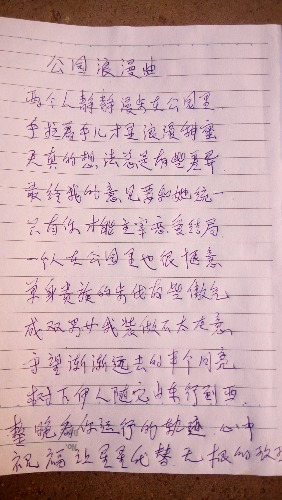 公园浪漫曲
两个人静静漫步在公园里
手拉着手儿才是浪漫甜蜜
天真的想法总是有些差异
最给我的意见要和她统一
只有你才能主宰恋爱结局
一个人在公园里也很惬意
单身贵族的朱伐有些傲气
成双男女我装做不太在意
守望渐渐远去的半个月亮
树下伊人随它由东行到西
整晚看你运行的轨迹 心中
祝福让星星代替 无限的